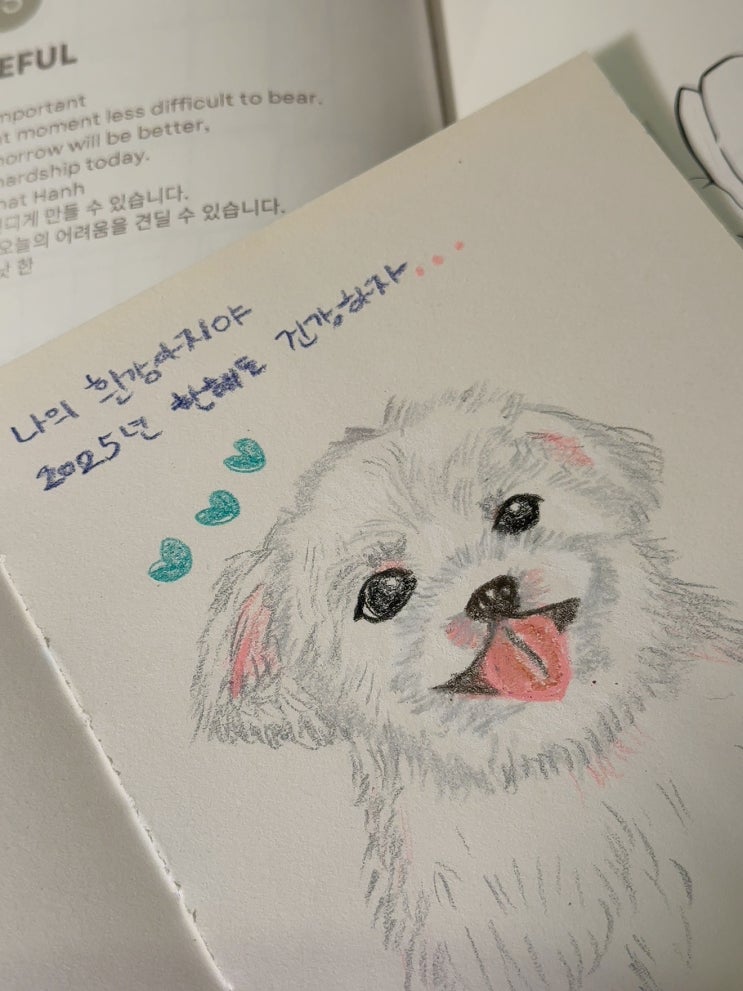 EFUL
mportant
t moment less difficult to bear.
orrow will be better,
hardship today.
hat Hanh
디게 만들 수 있습니다.
오늘의 어려움을 견딜 수 있습니다.
낫 한
나의 흰강아지야
2025년 한해도 건강하자...